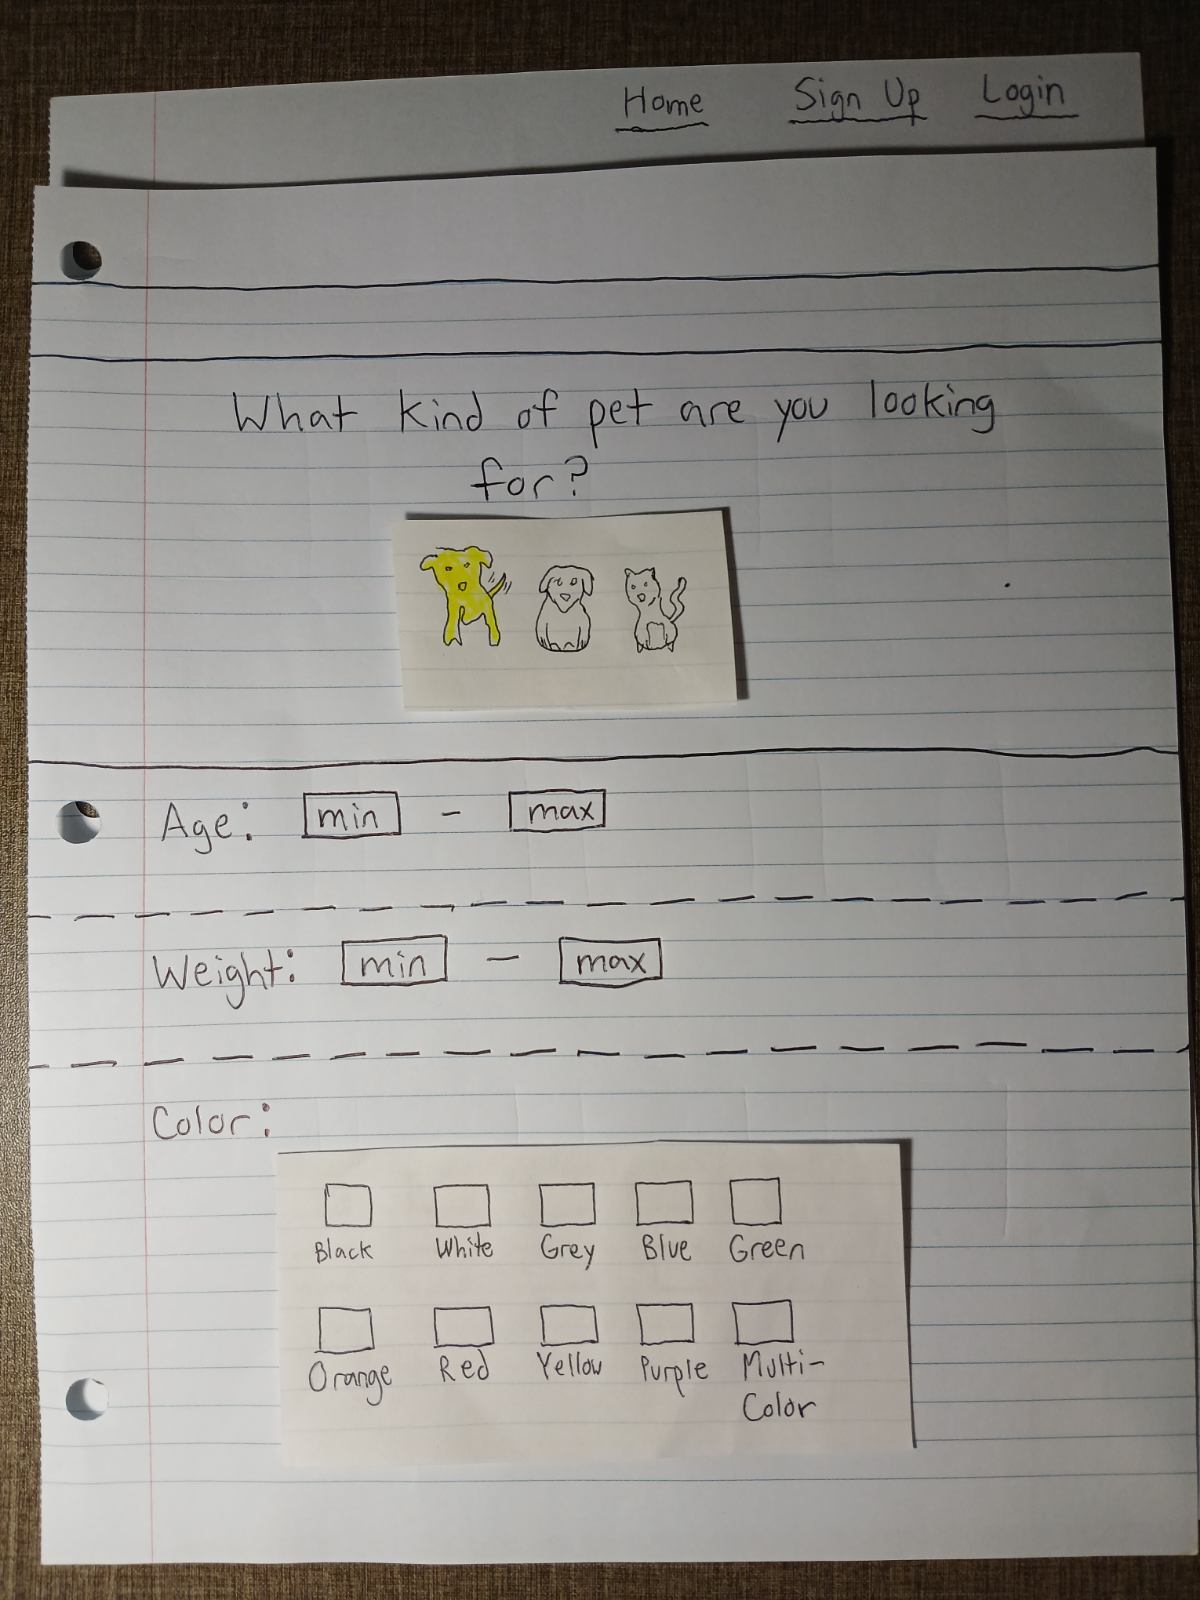 Home Sign Up Login
What kind of pet are you looking
for?
Age: min - max
Weight: min - max
Color:
Black White Grey Blue Green
Orange Red Yellow Purple Multi-
Color